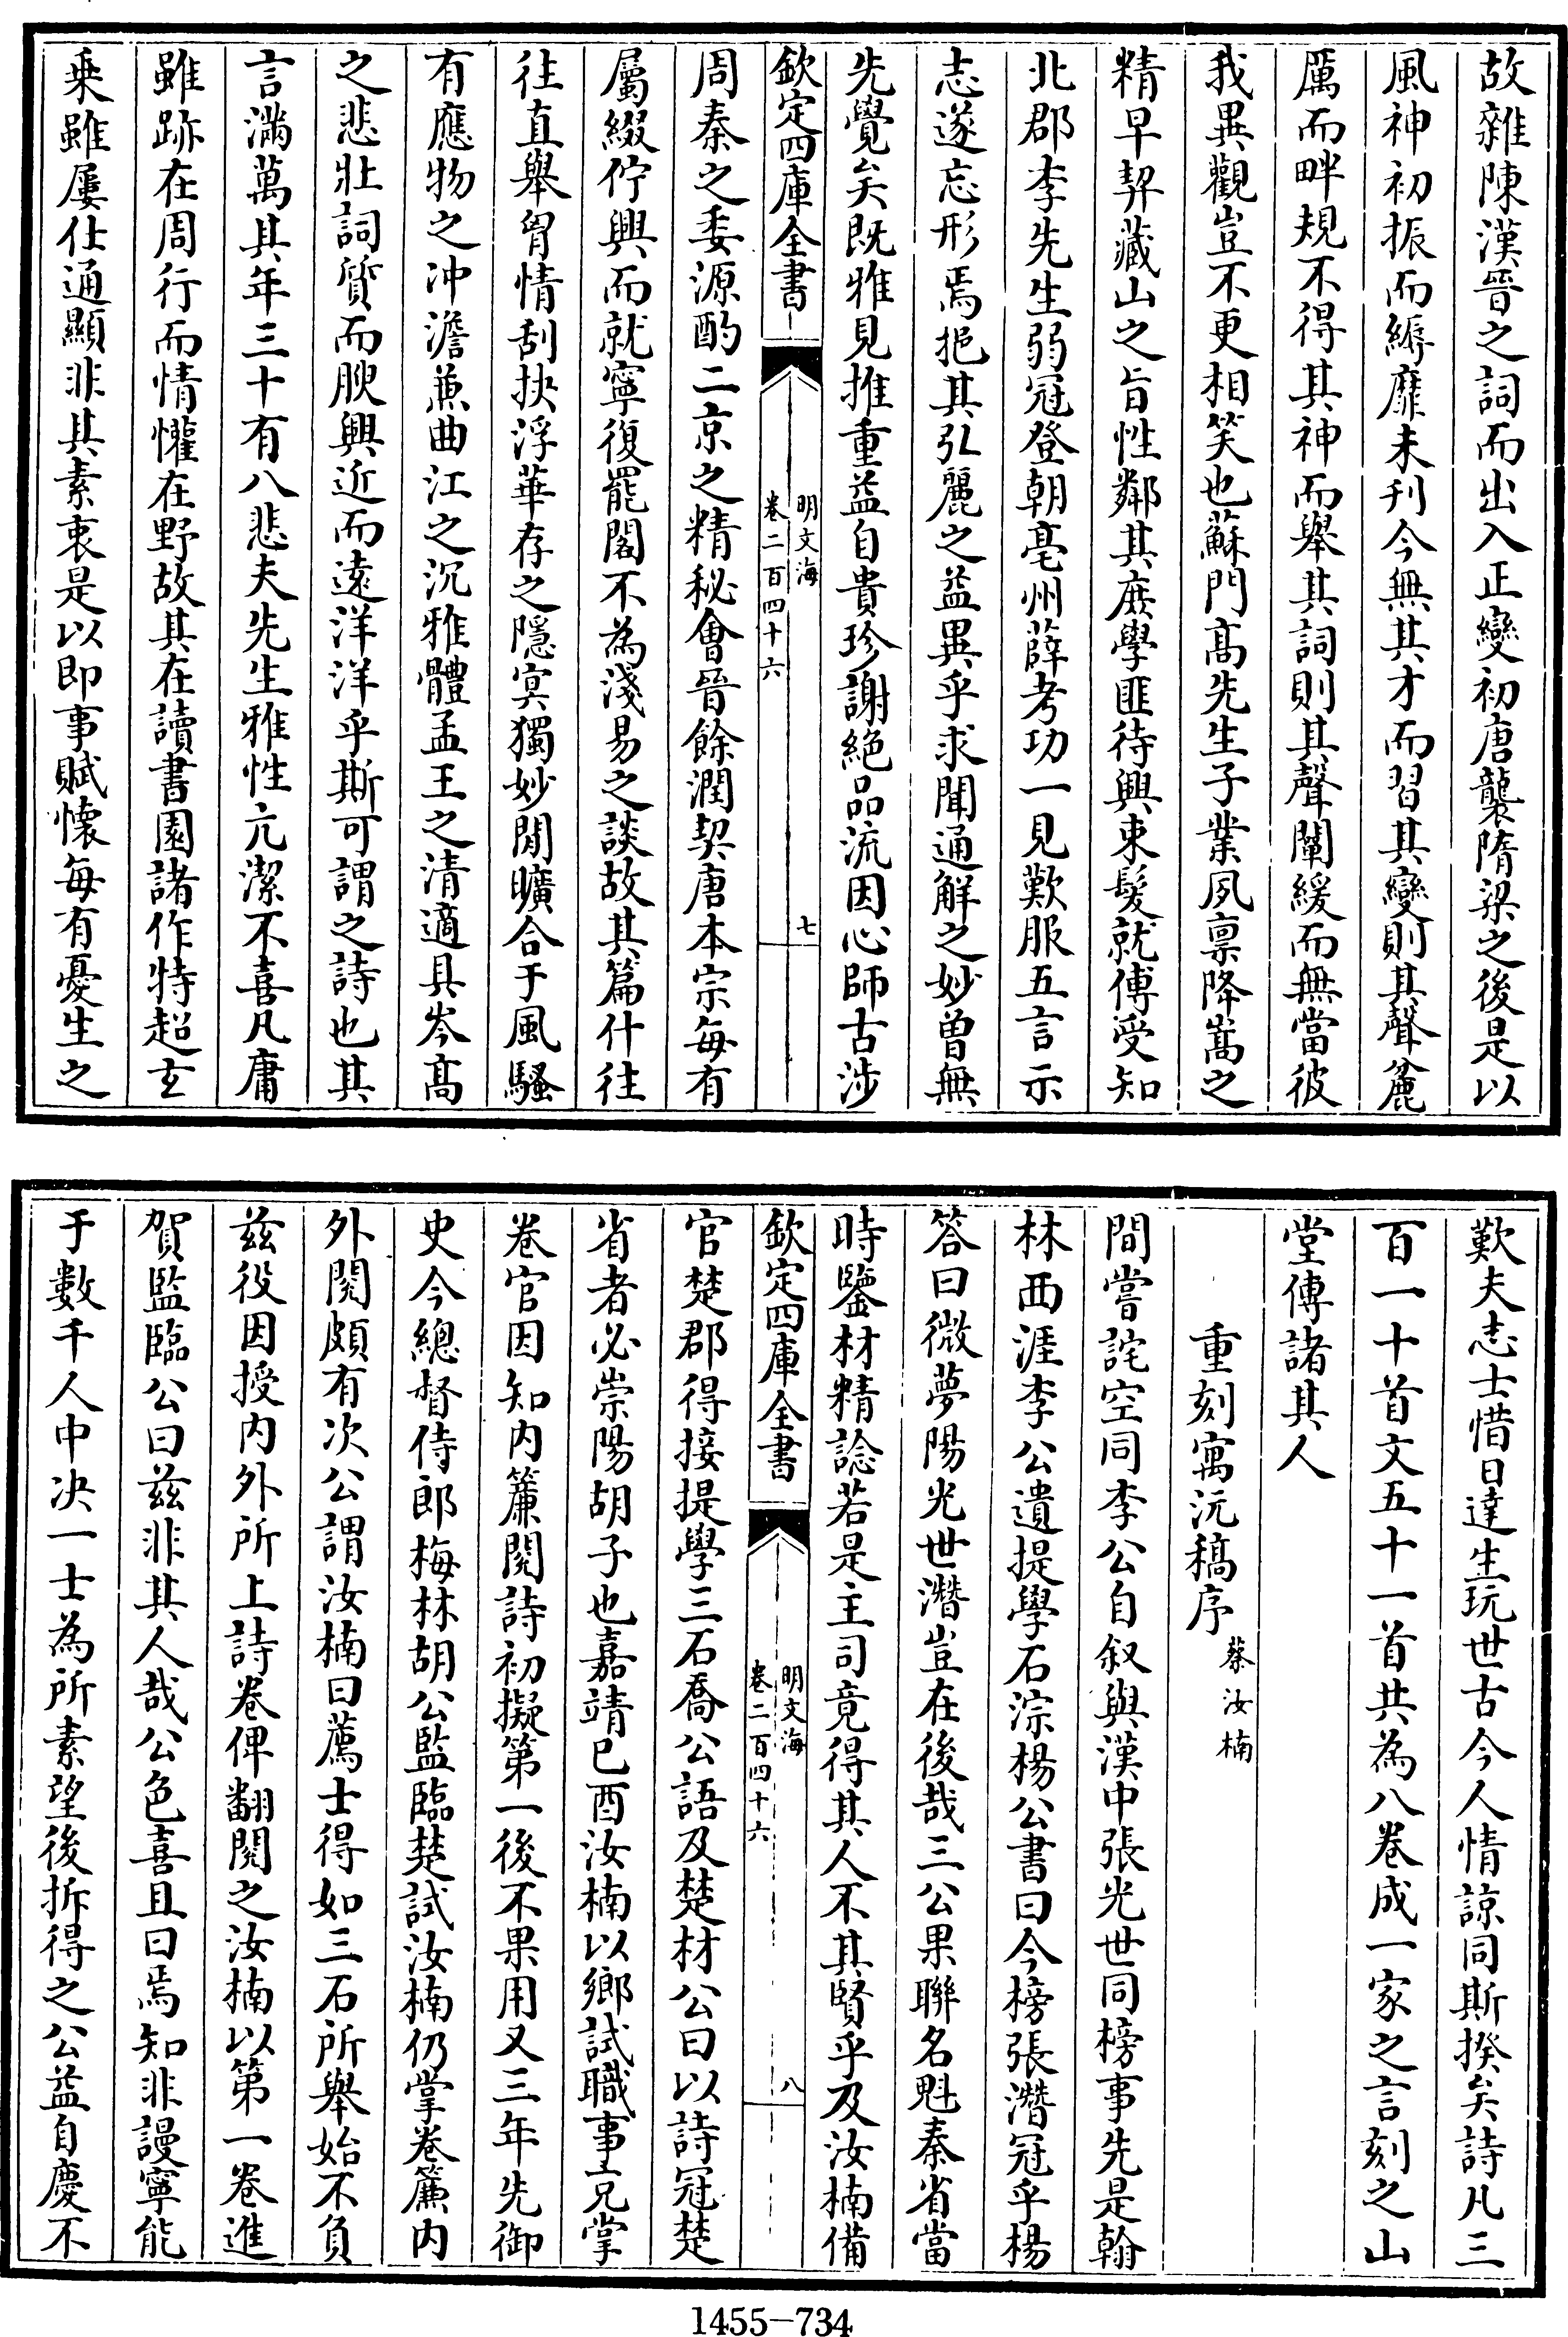 故雜陳漢晉之詞而出入正變初唐襲隋梁之後是以
風神初振而縟靡未刋今無其才而習其變則其聲麄
厲而畔規不得其神而舉其詞則其聲闡緩而無當彼
我異觀豈不更相笑也蘇門髙先生子業夙禀降嵩之
精早契藏山之旨性鄰其庶學匪待興束髮就傅受知
北郡李先生弱冠登朝亳州薛考功一見歎服五言示
志遂忘形焉挹其弘麗之益異乎求聞通解之妙曽無
先覺矣既雅見推重益自貴珍謝絶品流因心師古涉
欽定四庫全書
明文海
卷二百四十六
七
周秦之委源酌二京之精秘㑹晉餘潤契唐本宗每有
屬綴佇興而就寧復罷閣不為淺易之談故其篇什往
往直舉胷情刮抉浮華存之隱㝠獨妙閒曠合于風騷
有應物之冲澹兼曲江之沉雅體孟王之清適具岑髙
之悲壯詞質而腴興近而逺洋洋乎斯可謂之詩也其
言滿萬其年三十有八悲夫先生雅性亢潔不喜凡庸
雖跡在周行而情懽在野故其在讀書園諸作特超玄
乗雖屢仕通顯非其素衷是以即事賦懷每有憂生之
歎夫志士惜日達生玩世古今人情諒同斯揆矣詩凡三
百一十首文五十一首共為八卷成一家之言刻之山
堂傳諸其人
重刻寓沅稿序
蔡汝楠
間嘗詫空同李公自叙與漢中張光世同榜事先是翰
林西涯李公遺提學石淙楊公書曰今榜張潛冠乎楊
答曰微夢陽光世潛豈在後哉三公果聯名魁秦省當
時鑒材精諗若是主司竟得其人不其賢乎及汝楠備
欽定四庫全書
明文海
卷二百四十六
八
官楚郡得接提學三石喬公語及楚材公曰以詩冠楚
省者必崇陽胡子也嘉靖已酉汝楠以鄉試職事亮掌
卷官因知内簾閱詩初擬第一後不果用又三年先御
史今總督侍郎梅林胡公監臨楚試汝楠仍掌卷簾内
外閱頗有次公謂汝楠曰薦士得如三石所舉始不負
兹役因授内外所上詩卷俾翻閱之汝楠以第一卷進
賀監臨公曰兹非其人哉公色喜且曰焉知非謾寧能
于數千人中决一士為所素望後拆得之公益自慶不
1455-734